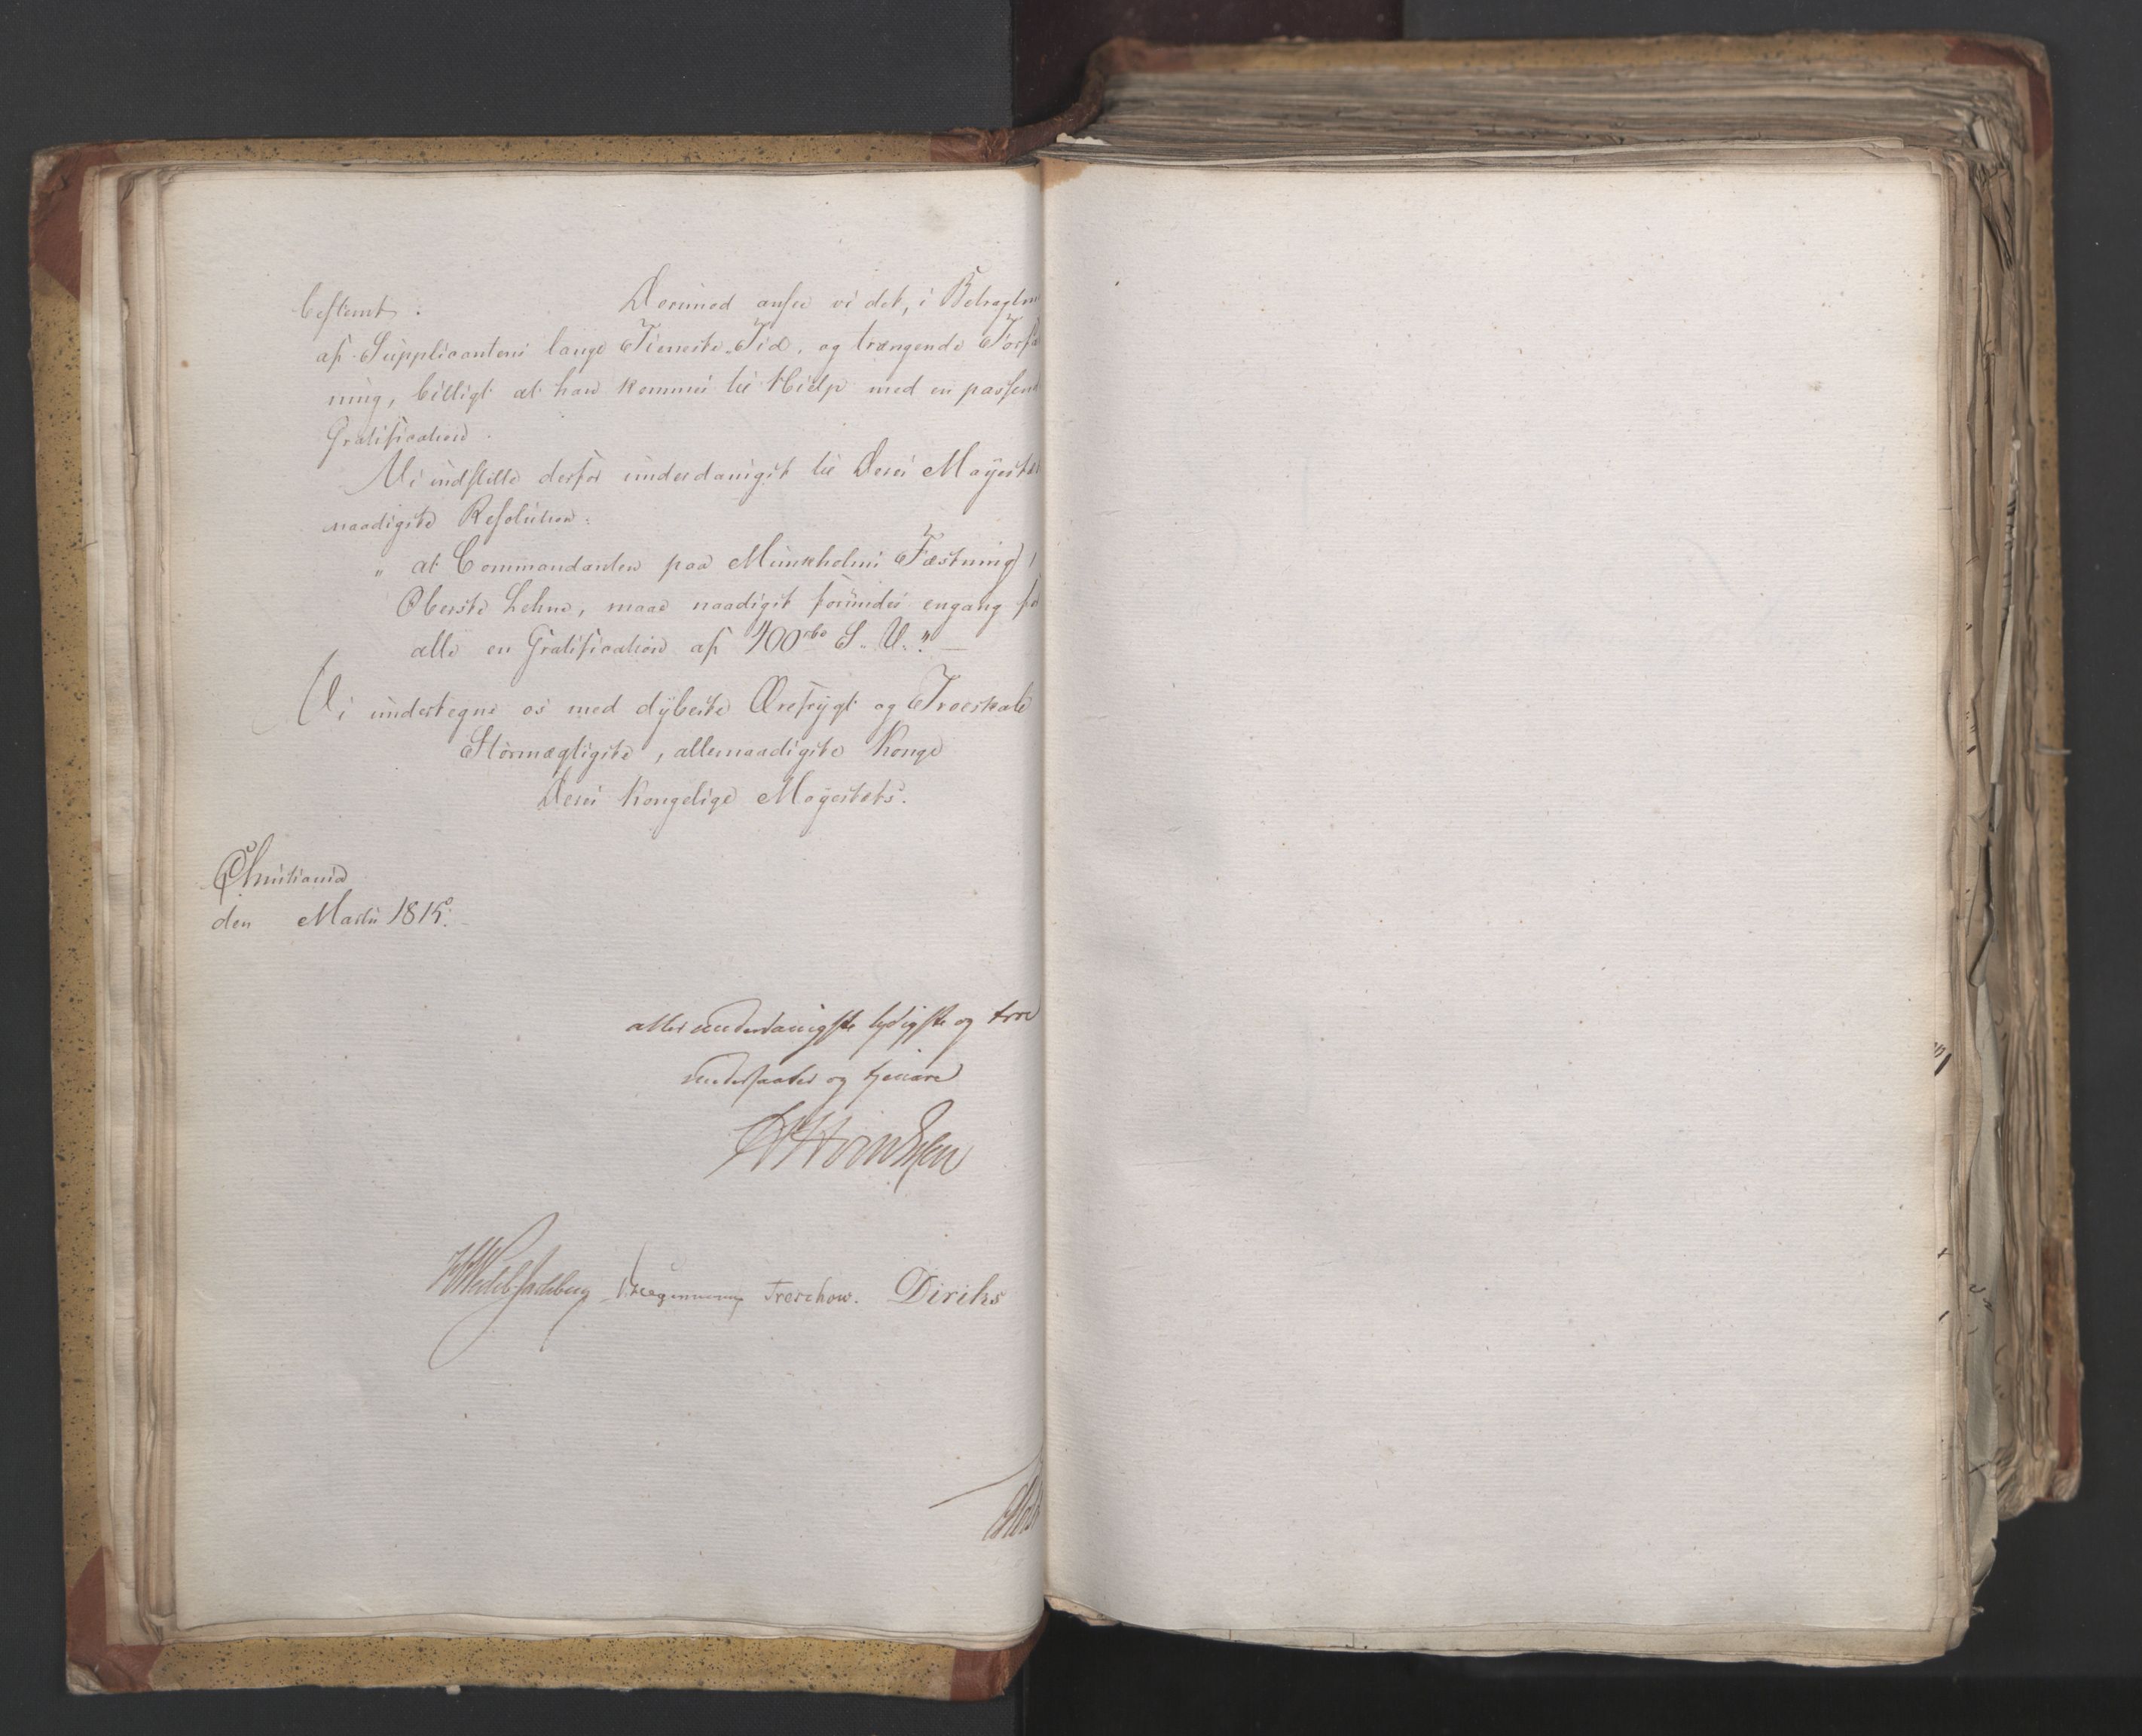 bestemt: Derimod ansee vi det, i Betragtn
af Supplicantens lange Tieneste-Tid, og trængende Forfa
ning, billigt at han kommer til Hielp med en passend
Gratification.
Vi indstille derfor underdanigst til Deres Mayestæts
naadigste Resolution:
" at Commandanten paa Munkholms Fæstning,
Oberste Lehne, maae naadigst forundes engang for
alle en Gratification af 400 rbd S. V. " —
Vi undertegne os med dybeste Ærefrygt og Troeskab
Stormægtigste, allernaadigste Konge
Deres Kongelige Mayestæts.
Christiania
den Martii 1815.
allerunderdanigste lydigste og troe
undersaatter og tjenere
WedelJarlsberg Treschow. Diriks
Holst